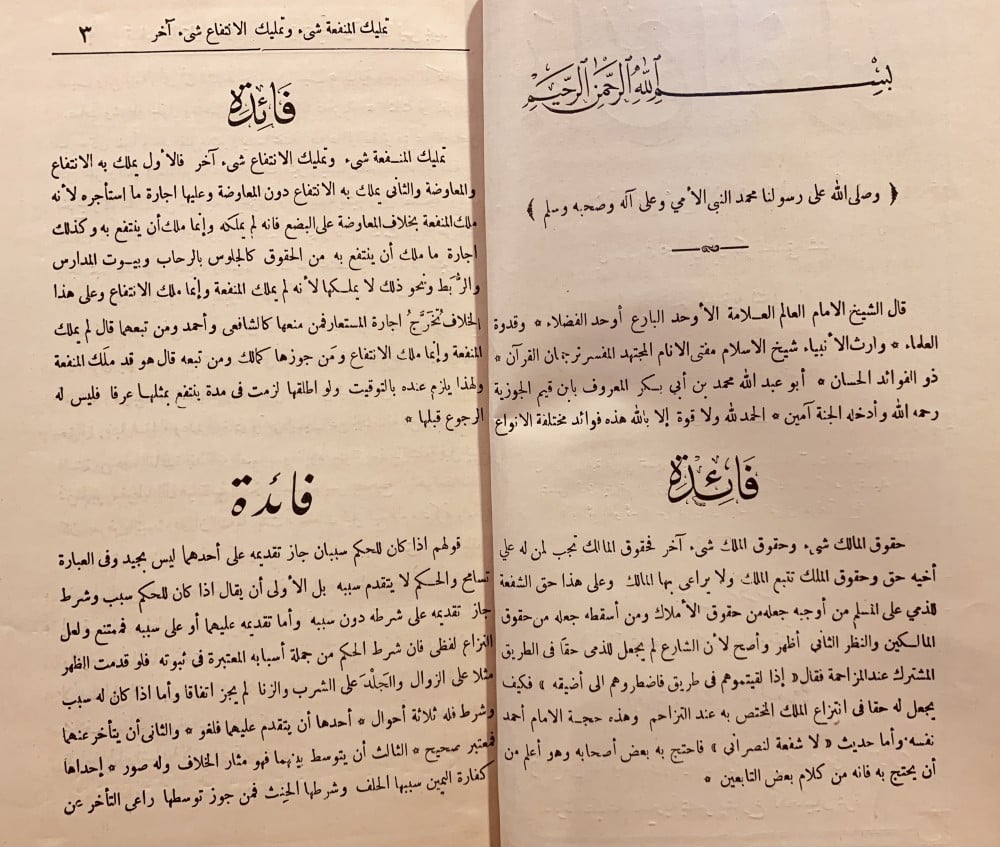 بسم الله الرحمن الرحيم
﴿ وصلى الله على رسولنا محمد النبي الأمي وعلى آله وصحبه وسلم ﴾
قال الشيخ الامام العالم العلامة الأوحد البارع أوحد الفضلاء * وقدوة
العلماء * وارث الأنبياء شيخ الاسلام مفتى الانام المجتهد المفسر ترجمان القرآن *
ذو الفوائد الحسان * أبو عبد الله محمد بن أبي بكر المعروف بابن قيم الجوزية
رحمه الله وأدخله الجنة آمين * الحمد لله ولا قوة إلا بالله هذه فوائد مختلفة الانواع
فَائِدة
حقوق المالك شىء وحقوق الملك شىء آخر فحقوق المالك تجب لمن له على
أخيه حق وحقوق الملك تتبع الملك ولا يراعى بها المالك وعلى هذا حق الشفعة
للذمي على المسلم من أوجبه جعله من حقوق الأملاك ومن أسقطه جعله من حقوق
المالكين والنظر الثاني أظهر وأصح لأن الشارع لم يجعل للذمى حقا فى الطريق
المشترك عند المزاحمة فقال « إذا لقيتموهم فى طريق فاضطروهم الى أضيقه » فكيف
يجعل له حقا فى انتزاع الملك المختص به عند التزاحم وهذه حجة الامام أحمد
نفسه. وأما حديث « لا شفعة لنصراني » فاحتج به بعض أصحابه وهو أعلم من
أن يحتج به فانه من كلام بعض التابعين *
تمليك المنفعة شىء وتمليك الانتفاع شىء آخر ٣
فَائِدة
تمليك المنفعة شىء وتمليك الانتفاع شىء آخر فالأول يملك به الانتفاع
والمعاوضة والثانى يملك به الانتفاع دون المعاوضة وعليها اجارة ما استأجره لأنه
ملك المنفعة بخلاف المعاوضة على البضع فانه لم يملكه وإنما ملك أن ينتفع به وكذلك
اجارة ما ملك أن ينتفع به من الحقوق كالجلوس بالرحاب وبيوت المدارس
والرُّبَط ونحو ذلك لا يملكها لأنه لم يملك المنفعة وإنما ملك الانتفاع وعلى هذا
الخلاف تُخَرَّجُ اجارة المستعار فمن منعها كالشافعى وأحمد ومن تبعهما قال لم يملك
المنفعة وإنما ملك الانتفاع ومَن جوزها كمالك ومن تبعه قال هو قد ملَك المنفعة
ولهذا يلزم عنده بالتوقيت ولو اطلقها لزمت فى مدة ينتفع بمثلها عرفا فليس له
الرجوع قبلها *
فائدة
قولهم اذا كان للحكم سببان جاز تقديمه على أحدهما ليس بجيد وفى العبارة
تسامح والحكم لا يتقدم سببه بل الأولى أن يقال اذا كان للحكم سبب وشرط
جاز تقديمه على شرطه دون سببه وأما تقديمه عليهما أو على سببه فممتنع ولعل
النزاع لفظى فان شرط الحكم من جملة أسبابه المعتبرة فى ثبوته فلو قدمت الظهر
مثلا على الزوال والجَلْدَ على الشرب والزنا لم يجز اتفاقا وأما اذا كان له سبب
وشرط فله ثلاثة أحوال * أحدها أن يتقدم عليهما فلغو * والثانى أن يتأخر عنهما
فمعتبر صحيح * الثالث أن يتوسط بينهما فهو مثار الخلاف وله صور * إحداها
كفارة اليمين سببها الحلف وشرطها الحِنث فمن جوز توسطها راعى التأخر عن